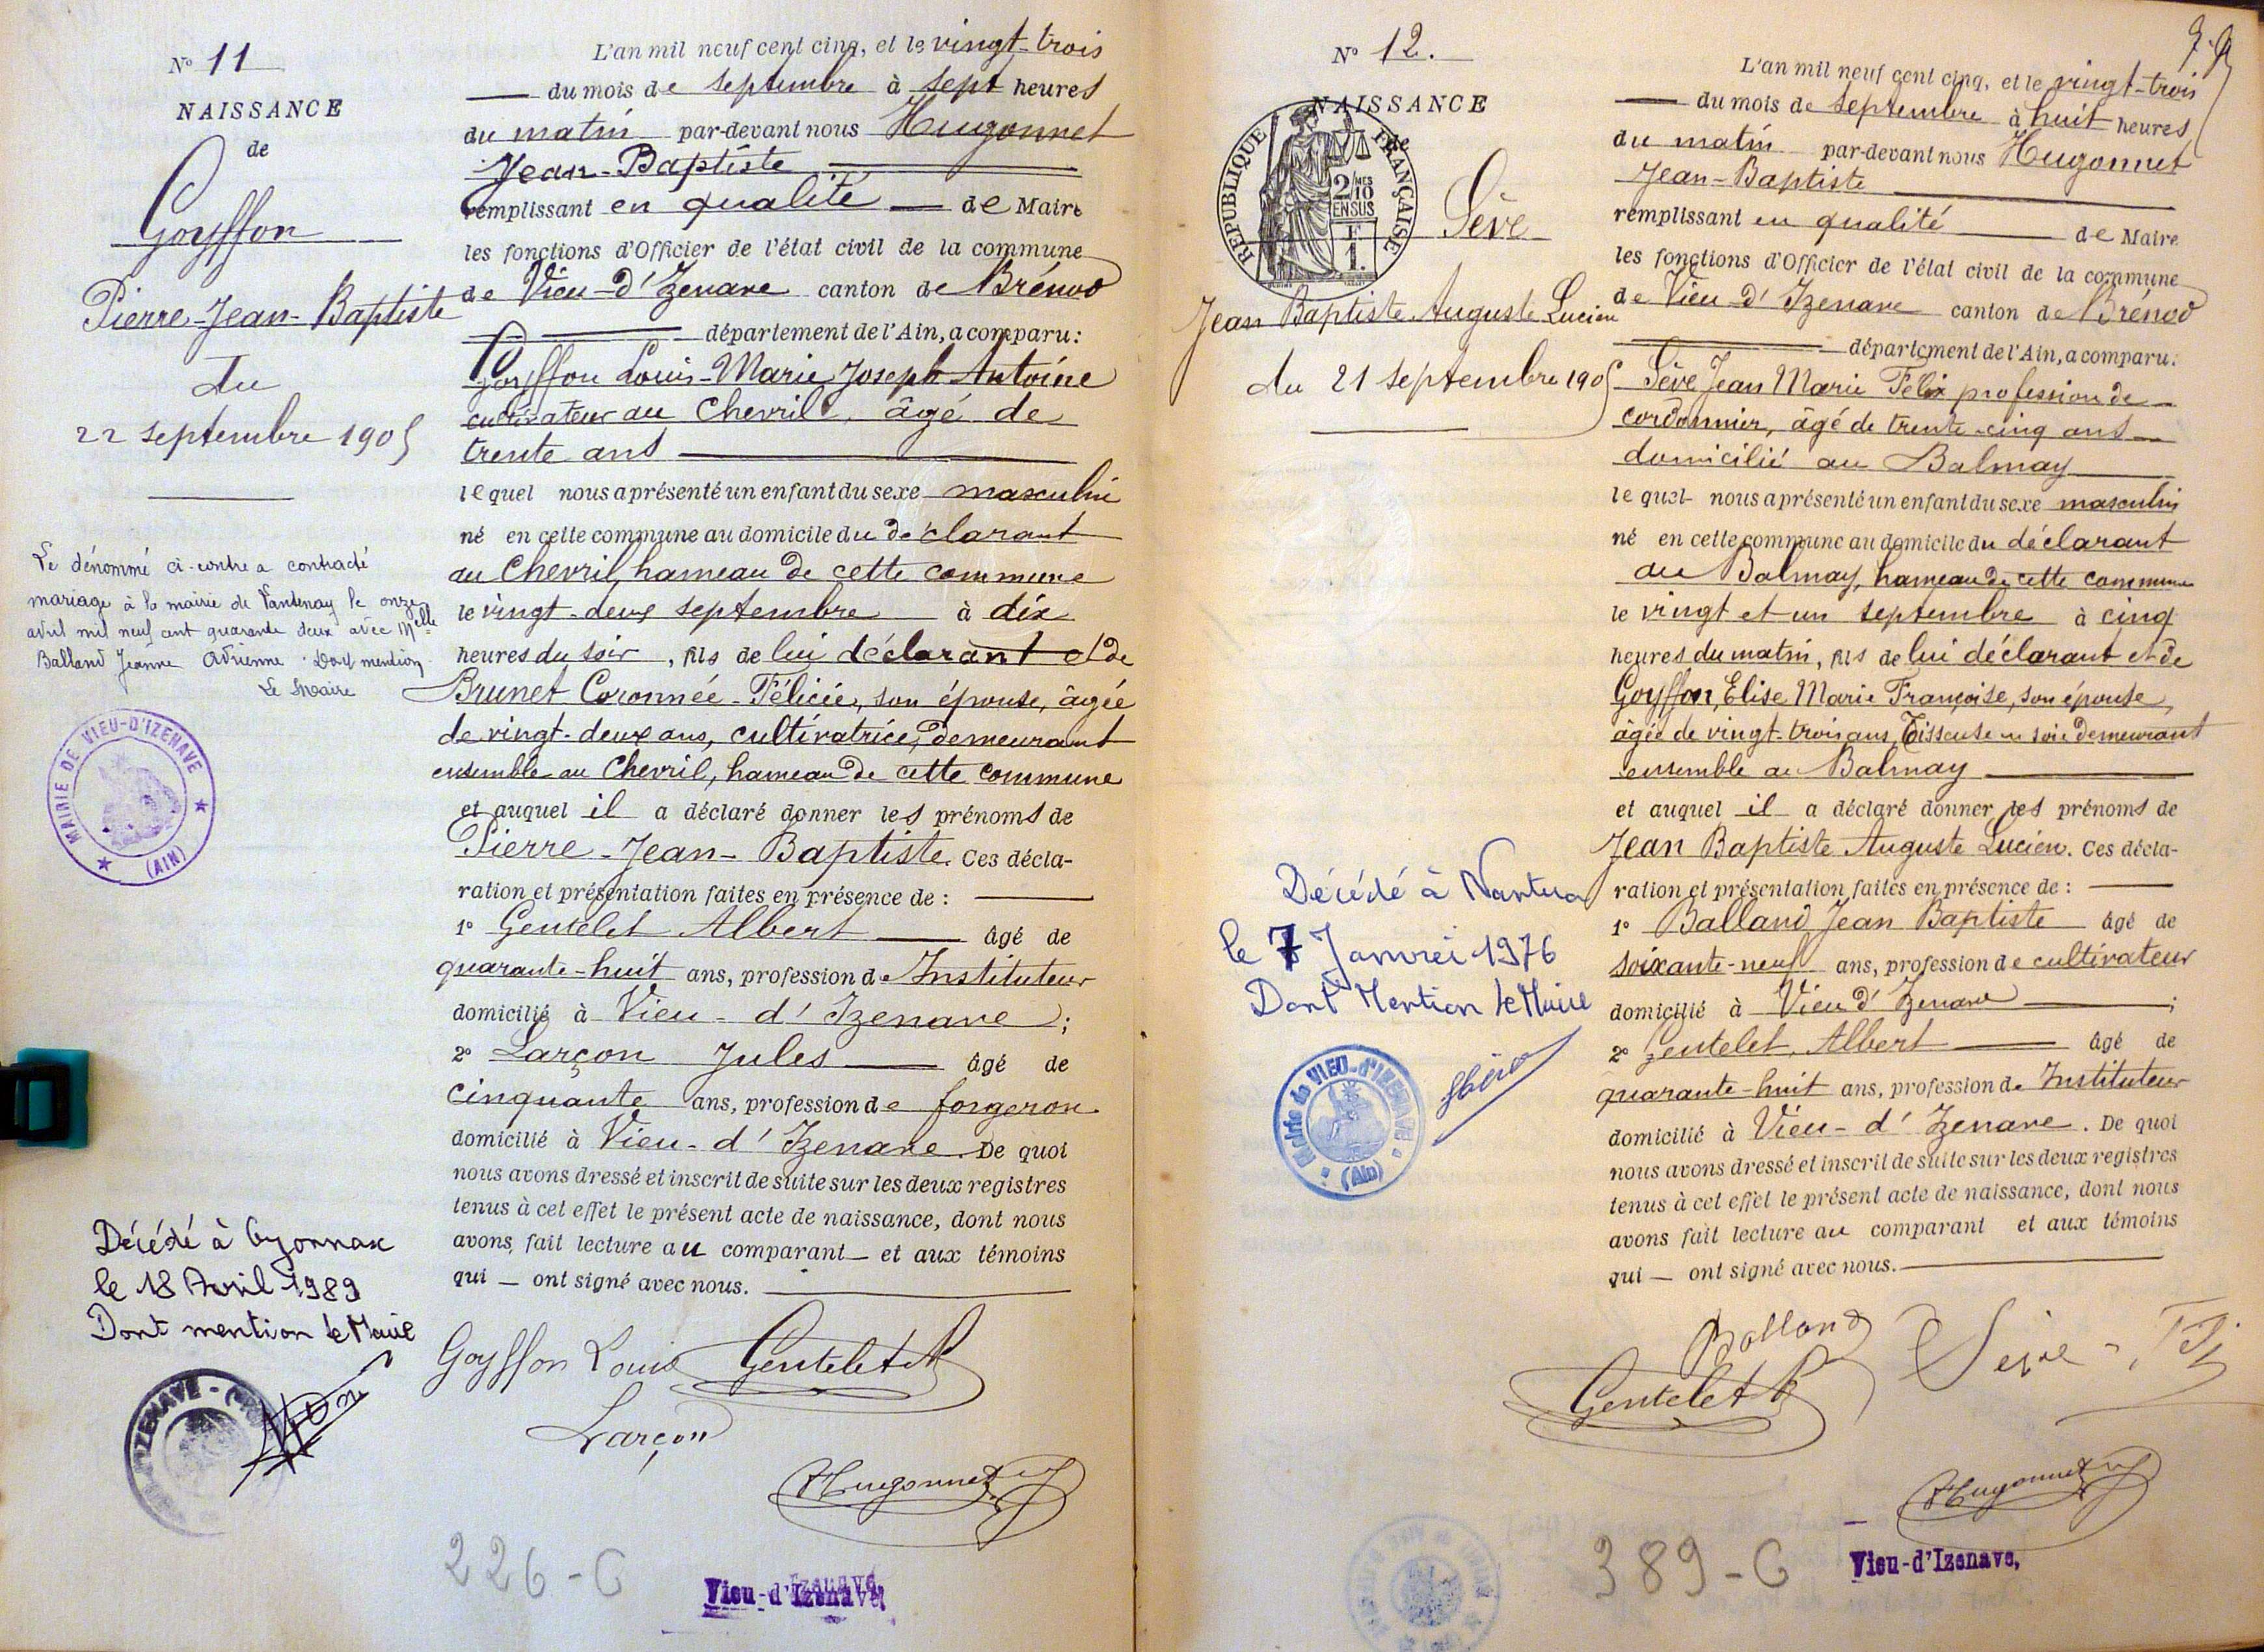 N° 11
NAISSANCE
de
Goyffon
Pierre-Jean-Baptiste
du
22 septembre 1905
Le dénommé ci-contre a contracté
mariage à la mairie de Vantenay le onze
avril mil neuf cent quarante deux avec Melle
Balland Jeanne Adrienne Dont mention
Le Maire
MAIRIE DE VIEU-D'IZENAVE
(AIN)
Décédé à Oyonnax
le 18 Avril 1989
Dont mention le Maire
L'an mil neuf cent cinq, et le vingt-trois
du mois de septembre à sept heures
du matin par-devant nous Hugonnet
Jean-Baptiste
remplissant en qualité de Maire
les fonctions d'Officier de l'état civil de la commune
de Vieu-d'Izenave canton de Brénod
département de l'Ain, a comparu:
Goyffon Louis-Marie Joseph Antoine
cultivateur au Chevril, âgé de
trente ans
lequel nous a présenté un enfant du sexe masculin
né en cette commune au domicile du déclarant
au Chevril, hameau de cette commune
le vingt-deux septembre à dix
heures du soir, fils de lui déclarant et de
Brunet Coronnée-Félicie, son épouse, âgée
de vingt-deux ans, cultivatrice, demeurant
ensemble au Chevril, hameau de cette commune
et auquel il a déclaré donner les prénoms de
Pierre-Jean-Baptiste. Ces décla-
ration et présentation faites en présence de :
1° Gentelet Albert âgé de
quarante-huit ans, profession de Instituteur
domicilié à Vieu-d'Izenave ;
2° Larçon Jules âgé de
cinquante ans, profession de forgeron
domicilié à Vieu-d'Izenave. De quoi
nous avons dressé et inscrit de suite sur les deux registres
tenus à cet effet le présent acte de naissance, dont nous
avons fait lecture au comparant et aux témoins
qui — ont signé avec nous.
Goyffon Louis Gentelet A
Larçon
Hugonnet
226-C
Vieu-d'Izenave,
N° 12.
NAISSANCE
de
REPUBLIQUE FRANÇAISE
2/10
MES
EN SUS
1.
Sève
Jean Baptiste Auguste Lucien
du 21 septembre 1905
Décédé à Nantua
le 7 Janvier 1976
Dont Mention le Maire
Mairie de VIEU-d'IZENAVE
(Ain)
L'an mil neuf cent cinq, et le vingt-trois
du mois de septembre à huit heures
du matin par-devant nous Hugonnet
Jean-Baptiste
remplissant en qualité de Maire
les fonctions d'Officier de l'état civil de la commune
de Vieu-d'Izenave canton de Brénod
département de l'Ain, a comparu:
Sève Jean Marie Félix profession de
cordonnier, âgé de trente-cinq ans
domicilié au Balmay
lequel nous a présenté un enfant du sexe masculin
né en cette commune au domicile du déclarant
au Balmay, hameau de cette commune
le vingt et un septembre à cinq
heures du matin, fils de lui déclarant et de
Goyffon, Elise Marie Françoise, son épouse,
âgée de vingt-trois ans, Tisseuse en soie demeurant
ensemble au Balmay
et auquel il a déclaré donner les prénoms de
Jean Baptiste Auguste Lucien. Ces décla-
ration et présentation faites en présence de :
1° Balland Jean Baptiste âgé de
soixante-neuf ans, profession de cultivateur
domicilié à Vieu d'Izenave ;
2° Gentelet, Albert âgé de
quarante-huit ans, profession de Instituteur
domicilié à Vieu-d'Izenave. De quoi
nous avons dressé et inscrit de suite sur les deux registres
tenus à cet effet le présent acte de naissance, dont nous
avons fait lecture au comparant et aux témoins
qui — ont signé avec nous.
Balland Sève
Gentelet A
Hugonnet
389-C
Vieu-d'Izenave,